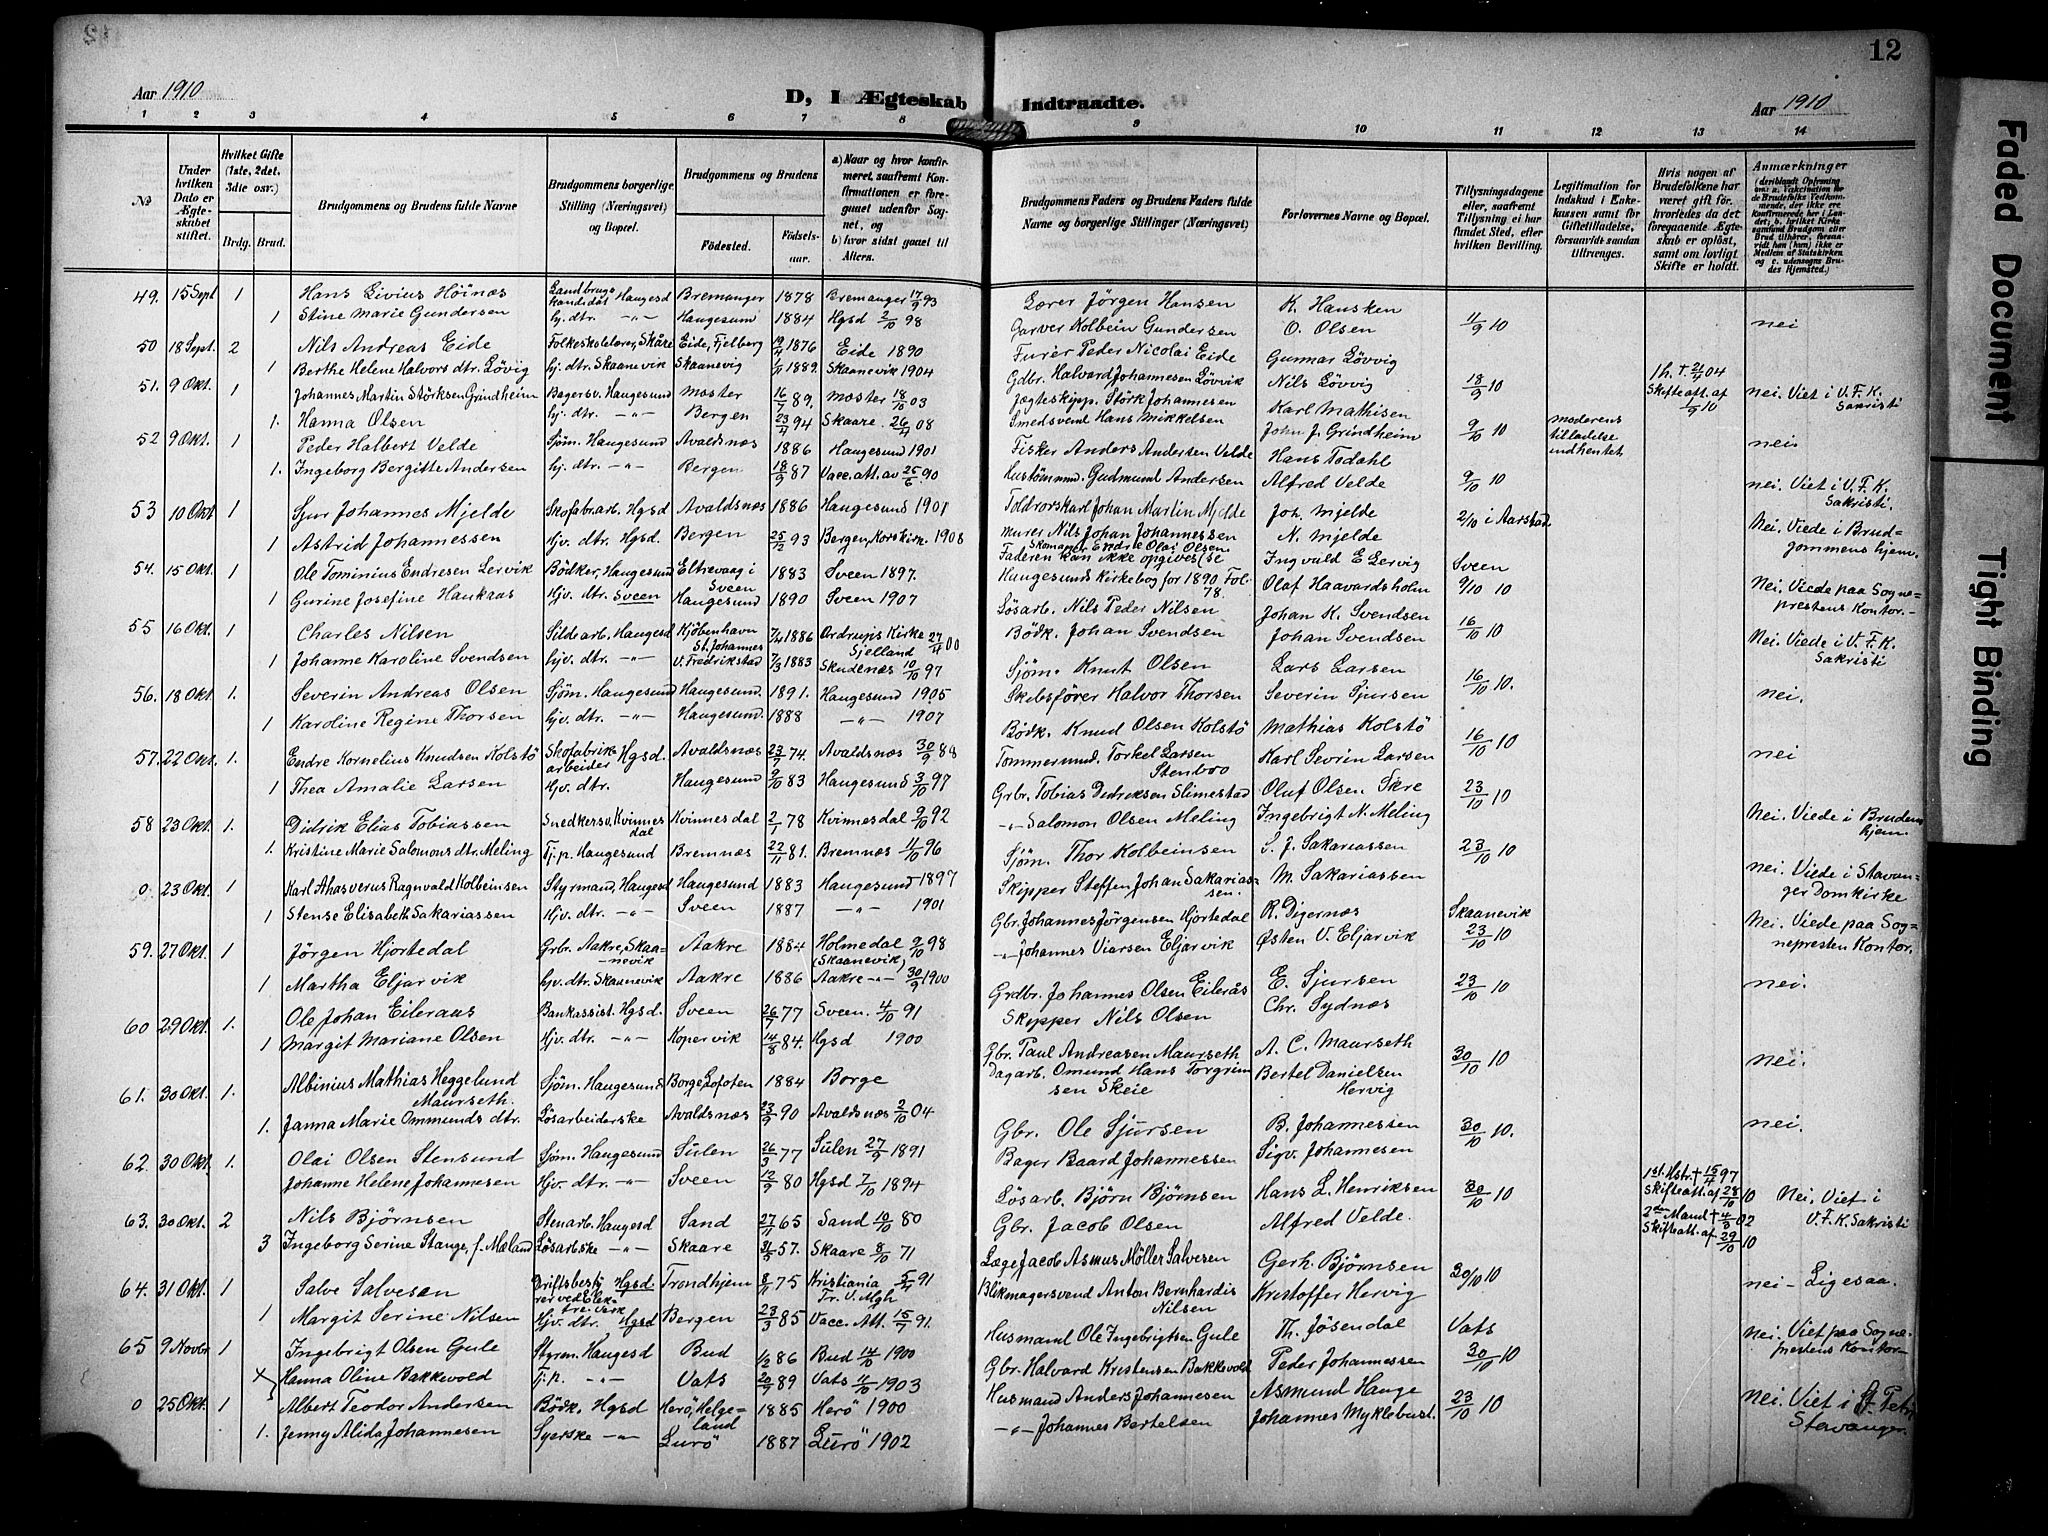 12
Aar 1910
D, I Ægteskab Indtraadte.
Aar 1910
1 2 3 4 5 6 7 8 9 10 11 12 13 14
No
Under hvilken Dato er Ægteskabet stiftet.
Hvilket Gifte (1ste, 2det, 3die osv.)
Brdg. Brud.
Brudgommens og Brudens fulde Navne
Brudgommens borgerlige Stilling (Næringsvei) og Bopæl.
Brudgommens og Brudens
Fødested.
Fødselsaar.
a) Naar og hvor konfirmeret, saafremt Konfirmationen er foregaaet udenfor Sognet, og
b) hvor sidst gaaet til Alters.
Brudgommens Faders og Brudens Faders fulde Navne og borgerlige Stillinger (Næringsvei)
Forlovernes Navne og Bopæl.
Tillysningsdagene eller, saafremt Tillysning ei har fundet Sted, efter hvilken Bevilling.
Legitimation for Indskud i Enkekassen samt for Giftetilladelse, forsaavidt saadan tiltrænges.
Hvis nogen af Brudefolkene har været gift før, hvorledes da det foregaaende Ægteskab er opløst, samt om lovligt Skifte er holdt.
Anmærkninger (deriblandt Oplysning om: a. Vaccination for de Brudefolkes Vedkommende, der ikke ere konfirmerede her i Landet; b. hvilket Kirkesamfund Brudgom eller Brud tilhører, forsaavidt han (hun) ikke er Medlem af Statskirken og c. udensogns Brudes Hjemsted.)
49. 15 Sept 1 Hans Livius Höinæs Landbrugskandidat Haugesd Bremanger 1878 Bremanger 17/9 93 Lærer Jörgen Hansen K. Hansken 11/9 10 nei
1 Stine Marie Gundersen hj. dtr. -"- Haugesund 1884 Hgsd 2/10 98 Garver Kolbein Gundersen O. Olsen
50 18 Sept. 2 Nils Andreas Eide Folkeskolelærer, Skåre Eide, Fjelberg 19/4 1876 Eide 1890 Furér Peder Nicolai Eide Gunnar Lövvig 18/9 10 1 h. + 21/4 04 Skifteatt. af 1/9 10 nei. Viet i V.F.K. Sakristi
1 Berthe Helene Halvors dtr. Lövig hj. dtr. Skaanevik Skaanevig 1/11 1889. Skaanevik 1904 Gdbr. Halvard Johannesen Lövvik Nils Lövvig
51. 9 Okt. 1 Johannes Martin Störksen Grindheim Bagersv. Haugesund Moster 16/7 89. Moster 18/10 03 Jægteskipp. Störk Johannesen Karl Mathisen 9/10 10 moderens tilladelse indhentet nei
1. Hanna Olsen hj. dtr. -"- Bergen 23/4 94 Skaare. 26/4 08 Smedsvend Hans Mikkelsen John J. Grindheim
52 9 Okt. 1 Peder Halbert Velde Sjöm. Haugesund Avaldsnæs 1886 Haugesund 1901 Fisker Anders Andersen Velde Hans Todahl 9/10 10 nei. Viet i V.F.K. Sakristi.
1. Ingeborg Bergitte Andersen hj. dtr. -"- Bergen 18/9 87 Vacc. att. av 25/6 90 Hustömmmd. Gudmund Andersen Alfred Velde
53 10 Okt 1 Sjur Johannes Mjelde Skofabr. arb. Hgsd Avaldsnæs 1886 Haugesund 1901 Toldrorskarl Johan Martin Mjelde Joh. Mjelde 2/10 i Aarstad Nei. Viede i Brudgommens hjem.
1 Astrid Johannessen Hjv. dtr. Hgsd. Bergen 25/12 93 Bergen, Korskirk. 1908 Murer Nils Johan Johannessen N. Mjelde
54. 15 Okt. 1 Ole Tominius Endresen Lervik Bödker, Haugesund Eltrevaag i Sveen 1883 Sveen 1897. Skomager Endre Olai Olsen Ingvald E Lervig Sveen 9/10 10 Nei. Viede paa Sogneprestens Kontor.-
1 Gurine Josefine Haukaas Hjv. dtr. Sveen Haugesund 1890 Sveen 1907 Faderen kan ikke opgives (se Haugesunds Kirkebog for 1890 Fol. 78. Olaf Haavardsholm
55 16 Okt. 1 Charles Nilsen Sildearb. Haugesd Kjöbenhavn St. Johannes 7/4 1886 Ordrups Kirke Sjelland 27/4 00 Lösarb. Nils Peder Nilsen Johan K. Svendsen 16/10 10 Nei. Viede i V.F.K. Sakristi
1 Johanne Karoline Svendsen hjv. dtr. -"- V. Fredrikstad 7/3 1883 Skudenæs 10/10 97 Bödk. Johan Svendsen Johan Svendsen
56. 18 Okt 1. Severin Andreas Olsen Sjöm. Haugesund Haugesund. 1891. Haugesund 1905 Sjöm. Knut Olsen Lars Larsen 16/10 10. nei.
1 Karoline Regine Thorsen hjv. dtr. -"- Haugesund. 1888 -"- 1907 Skibsförer Halvor Thorsen Severin Tjursen
57. 22 Okt. 1. Endre Kornelius Knudsen Kolstö Skofabrikarbeider Hgsd. Avaldsnæs 23/7 74. Avaldsnæs 30/9 88 Bödk. Knud Olsen Kolstö Mathias Kolstö 16/10 10 nei
1 Thea Amalie Larsen Hjv. dtr. Haugesund 9/10 83 Haugesund 3/10 97 Tommermd. Torkel Larsen Stenboo Karl Sevrin Larsen
58 23 Okt. 1. Didrik Elias Tobiassen Snedkersv. Kvinnesdal Kvinnesdal 2/1 78 Kvinnesdal 9/10 92 Grbr. Tobias Didriksen Slimestad Oluf Olsen Skre 23/10 10 Nei. Viede i Brudens hjem.
1. Kristine Marie Salomons dtr. Meling Tj. p. Haugesund Bremnæs 22/11 81. Bremnæs 11/10 96 -"- Salomon Olsen Meling Ingebrigt N. Meling
0. 23 Okt. 1 Karl Ahasverus Ragnvald Kolbeinsen Styrmand, Haugesd Haugesund 1883 Haugesund 1897 Sjöm. Thor Kolbeinsen S. J. Sakariassen 23/10 10 nei. Viede i Stavanger Domkirke
1 Stense Elisabeth Sakariassen Hjv. dtr. -"- Sveen 1887 -"- 1901 Skipper Steffen Johan Sakariassen. M. Sakariassen
59. 27 Okt. 1 Jörgen Hjortedal Grbr. Aakre, Skaanevik Aakre 1884 Holmedal 9/10 98 (Skaanevik) Gbr. Johannes Jörgensen Hjortedal R. Digernæs Skaanevik 23/10 10 Nei. Viede paa Sognepresten Kontor.
1 Martha Eljarvik hjv. dtr. Skaanevik Aakre 1886 Aakre -"- 30/9 1900 -"- Johannes Viarsen Eljarvik Østen V. Eljarvik
60 29 Okt. 1. Ole Johan Eileraas Bankassist. Hgsd. Sveen 26/7 77 Sveen. 4/10 91 Grdbr. Johannes Olsen Eilerås E. Sjursen 23/10 10 nei.
1 Margit Mariane Olsen Hjv. dtr. -"- Kopervik 14/8 84. Hgsd 1900 Skipper Nils Olsen Chr. Sydnæs
61. 30 Okt. 1. Albinius Mathias Heggelund Maurseth. Sjöm. Haugesund Borge, Lofoten 1884 Borge Gbr. Paul Andreasen Maurseth A. C. Maurseth 30/10 10 nei.
1. Janna Marie Ommunds dtr. Lösarbeiderske Avaldsnæs 23/9 90 Avaldsnæs 2/10 04 Dagarb. Omund Hans Torgrimsen Skeie Bertel Danielsen Hervig
62. 30 Okt. 1. Olai Olsen Stensund Sjöm. Haugesund Sulen 26/3 77 Sulen 27/9 1891 Gbr. Ole Sjursen B. Johannessen 30/10 10. nei.
Johanne Helene Johannesen Hjv. dtr. -"- Sveen 12/9 80 Hgsd 7/10 1894 Bager Baard Johannessen Sigv. Johannesen
63. 30 Okt. 2 Nils Bjørnsen Stenarb. Haugesd Sand 27/11 65 Sand 10/10 80 Lösarb. Bjørn Bjørnsen Hans L. Henriksen 30/10 10 1st. Hstr. + 15/4 97 Skifteatt. af 28/10 10 Nei. Viet i V.F.K. Sakristi
3 Ingeborg Serine Stange, f. Mæland Lösarbske -"- Skaare 31/5 57. Skaare 8/10 71 Gbr. Jacob Olsen Alfred Velde. 2den Mand + 4/3 02 Skifteatt. af 29/10 10
64. 31 Okt. 1 Salve Salvesen Driftsbestyrer ved Elektre. Verk Hgsd. Trondhjem 8/11 75 Kristiania Tr. V. Mgh 5/4 91 Læge Jacob Asmus Möller Salvesen Gerh. Bjørnsen 30/10 10 nei - Ligesaa.
1 Margit Serine Nilsen Hjv. dtr. Hgsd Bergen 23/3 85 Vacc. Att. 15/7 91. Blikmagersvend Anton Bernhardis Nilsen Kristoffer Hervig
65 9 Novbr 1 Ingebrigt Olsen Gule Styrm. Haugesd Bud 1/2 86 Bud 14/10 1900 Husmand Ole Ingebrigtsen Gule Th. Jösendal Vats 30/10 10 nei. Viet paa Sogneprestens Kontor-
Hanna Oline Bakkevold Tj. p. -"- Vats 20/9 89 Vats 11/10 1903 Gbr. Halvard Kristensen Bakkevold Peder Johannessen
0 25 Okt. 1 Albert Teodor Andersen Bödk. Hgsd Herö, Helgeland 1885 Herö 1900 Husmand Anders Johannesen Asmund Hauge 23/10 10 nei. Viet i St. Petri Stavanger.
1. Jenny Alida Johannesen Syerske -"- Lurö 1887 Lurö 1902 -"- Johannes Bertelsen Johannes Myklebust.
Faded Document
Tight Binding